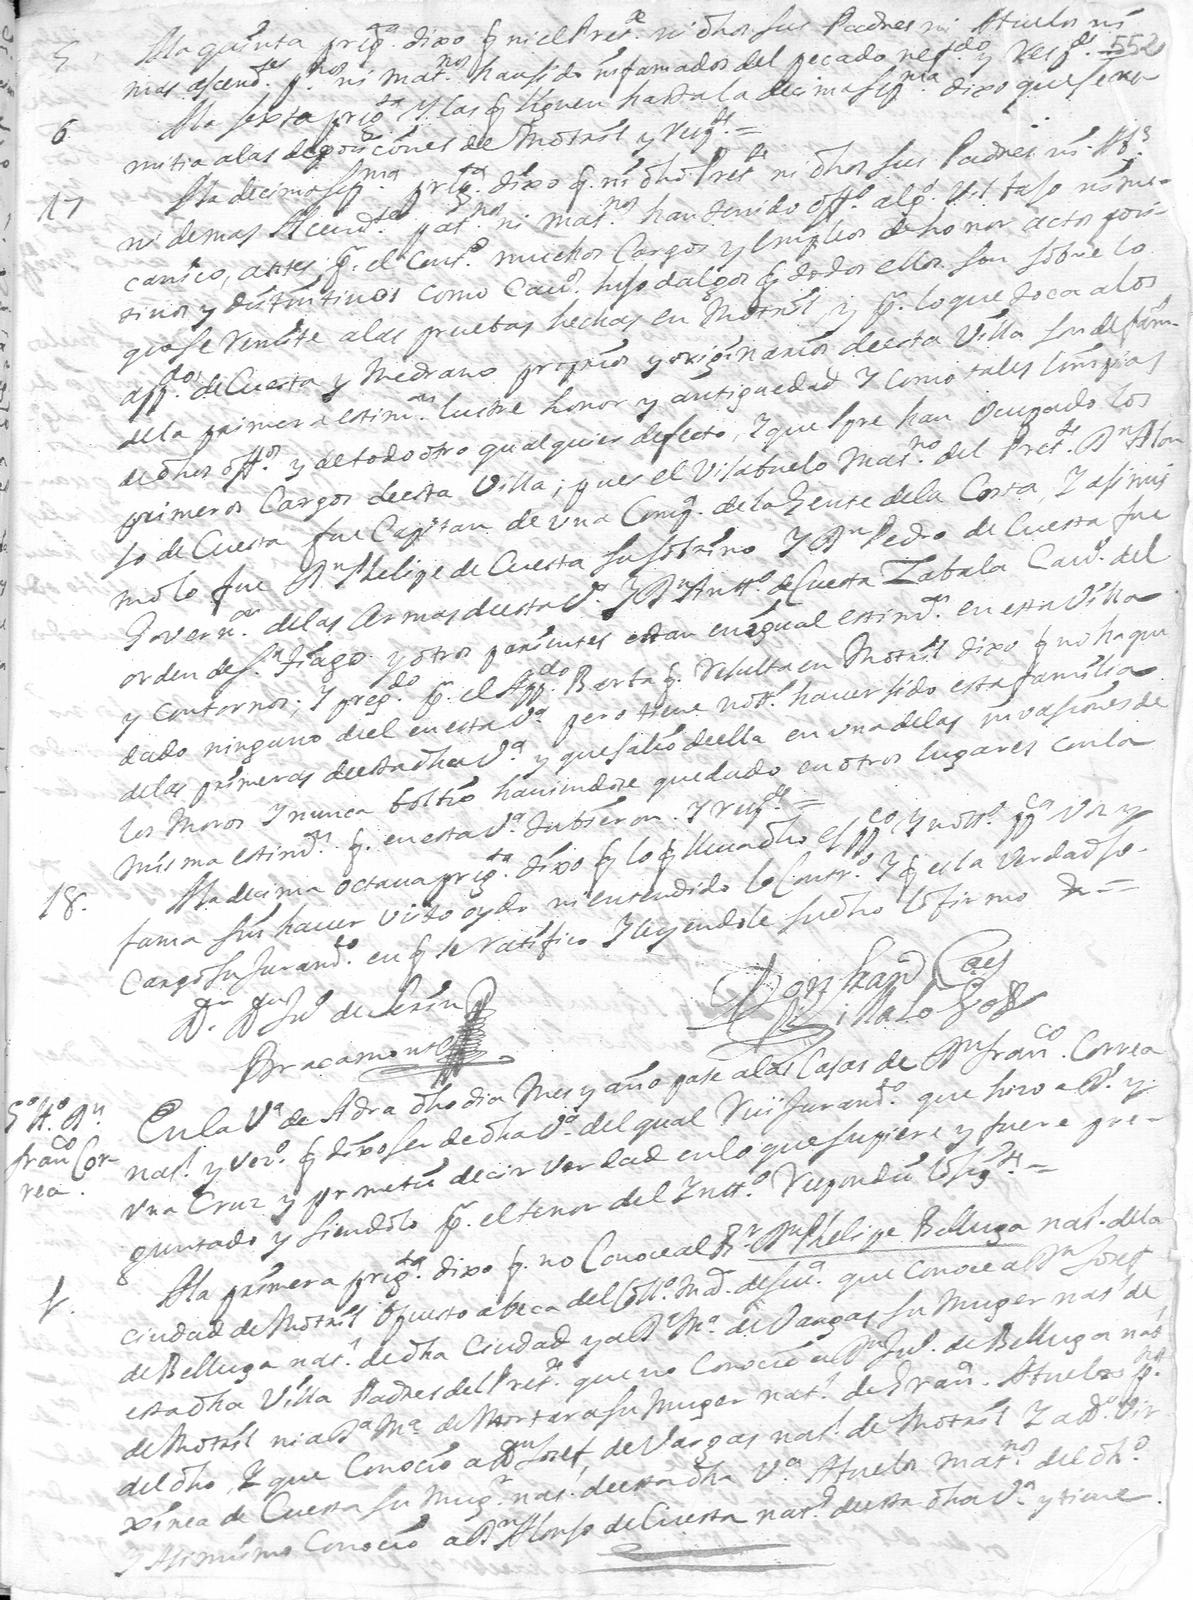 552
5. A la quinta preg.ta dixo q ni el Pret.te ni dhos sus Padres ni Abuelos ni
mas ascend.tes p.nos ni mat.nos han sido infamados del pecado nef.do y resp.de =
6 A la sexta preg.ta y las q siguen hasta la decima sep.ma dixo que se re
mitia a las deposiciones de Motril y resp.de =
17 A la decima sep.ma preg.ta dixo q. ni dho Pret.te ni dhos sus Padres ni Ab.s
ni demas Ascend.tes pat.nos ni mat.nos han tenido off.o alg.o vil bajo ni me-
canico, antes p.r el cont.o muchos Cargos y Empleos de honor actos posi-
tivos y distintivos como Cav.os hijo dalgos q todos ellos son sobre lo
que se remite a las pruebas hechas en Motril, y p.r lo que toca a los
app.dos de Cuesta y Medrano proprios y originarios de esta Villa son de fam.
de la primera estim.on lustre honor y antiguedad y como tales limpias
de dhos off.os y de todo otro qualquier defecto, y que spre han ocupado los
primeros Cargos de esta Villa; pues el Visabuelo Mat.no del Pret.te Dn Alon
so de Cuesta fue Capitan de una Comp.a de la Gente de la Costa, y asimis
mo lo fue Dn Phelipe de Cuesta su sobrino y Dn Pedro de Cuesta fue
Govern.or de las Armas de esta V.a y Dn Antt.o de Cuesta Zabala Cav.o del
orden de S.n Tiago y otros parientes estan en igual estim.on en esta Villa
y contornos; y preg.do p.r el App.do Berta q. resulta en Motril dixo q no ha que
dado ninguno de el en esta V.a pero tiene nott.a haver sido esta familia
de las primeras de esta dha V.a y que salio de ella en una de las invasiones de
los Moros y nunca bolbio haviendose quedado en otros lugares con la
misma estim.on q. en esta V.a tubieron. y resp.de =
18. A la decima octava preg.ta dixo q lo q lleva dho es p.co y nott.o p.ca voz y
fama sin haver visto oydo ni entendido lo Contr.o y q es la verdad so
cargo su Juram.to en q se ratifico y leyendole su dho lo firmo =
Dn Dn Ju.o de Leria
Bracamonte
5.o t.o Dn
fran.co Cor-
rea.
En la V.a de Adra dho dia Mes y año pase a las Casas de Dn fran.co Correa
nat.l y vez.o q dixo ser de dha V.a del qual recivi Juram.to que hizo a D.s y
una Cruz y prometio decir verdad en lo que supiere y fuere pre-
guntado y siendolo p.r el tenor del Intt.o respondio lo sig.te =
1. A la primera preg.ta dixo q. no Conoce al Br. Dn Phelipe Belluga nat.l de la
Ciudad de Motril opuesto a beca del Coll.o Ma.r de Cu.a que conoce a Dn Josef
de Belluga nat.l de dha Ciudad y a D.a M.a de Vargas su Muger nat.l de
esta dha Villa Padres del Pret.te que no Conocio a Dn Ju.o de Belluga nat.l
de Motril ni a D.a M.a de Mortara su Muger nat.l de Gran.a Abuelos p.nos
del dho, y que Conocio a Dn Josef de Vargas nat.l de Motril y a D.a Vir
xinea de Cuesta su Mug.r nat.l de esta dha V.a Abuelos Mat.nos del dh.o
y Asimismo Conocio a Dn Alonso de Cuesta nat.l de esta dha V.a y tiene